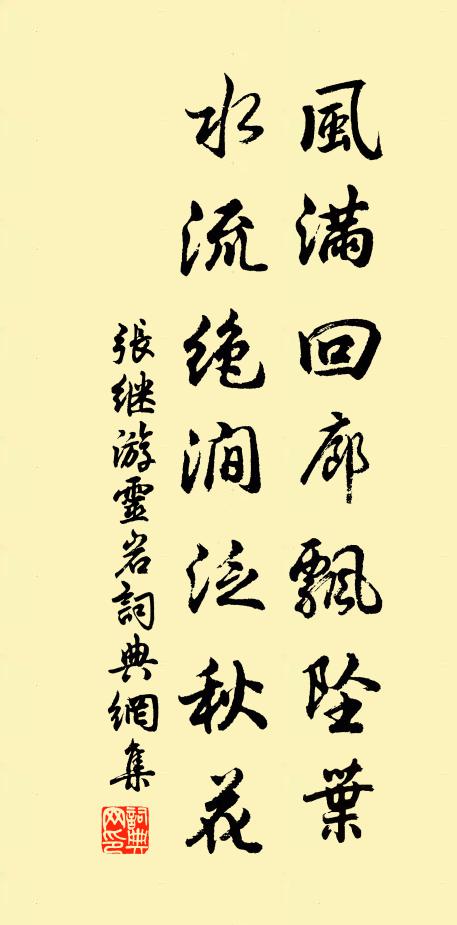 風滿回廊飄墜葉
水流絶澗泛秋花
張继游靈岩詞典網集
詞典网印